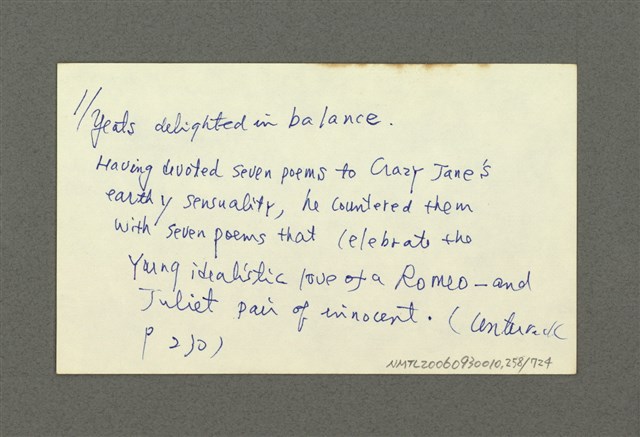 1/ Yeats delighted in balance.
Having devoted seven poems to Crazy Jane's
earthy sensuality, he countered them
with seven poems that celebrate the
young idealistic love of a Romeo-and
Juliet pair of innocent. (Unterneck
P 230)
NMTL20060930010,258/724